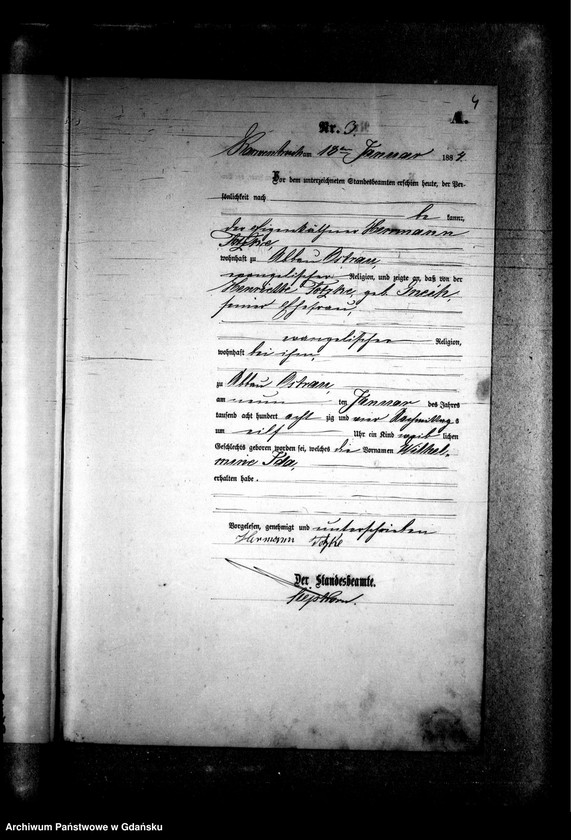 4
A.
Nr. 3.
am 12ten Januar 1884
Vor dem unterzeichneten Standesbeamten erschien heute, der Per-
sönlichkeit nach
be kannt,
der Eigenkäthner Hermann
wohnhaft zu Abbau Ostrau
evangelischer Religion, und zeigte an, daß von der
geb.
seiner Ehefrau,
evangelischer Religion,
wohnhaft bei ihm,
zu Abbau Ostrau,
am neun ten Januar des Jahres
tausend acht hundert acht zig und vier Nachmittags
um eilf Uhr ein Kind weib lichen
Geschlechts geboren worden sei, welches die Vornamen Wilhel-
mine Ida,
erhalten habe.
Vorgelesen, genehmigt und unterschrieben
Hermann
Der Standesbeamte.
Archiwum Państwowe w Gdańsku